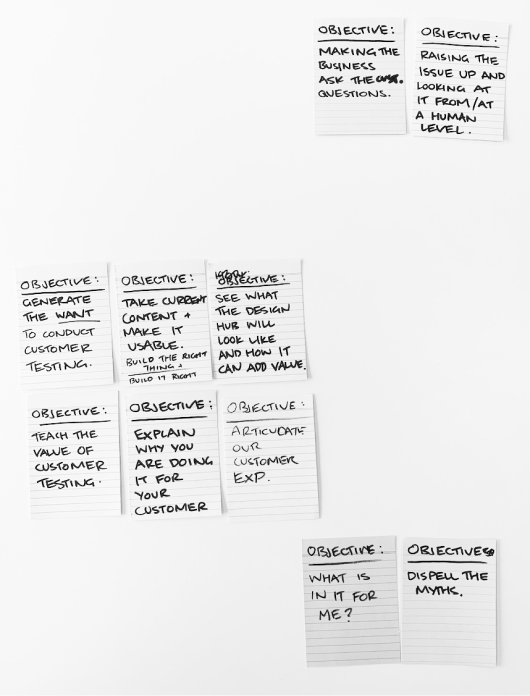 OBJECTIVE:
MAKING THE
BUSINESS
ASK THE
QUESTIONS.
OBJECTIVE:
RAISING THE
ISSUE UP AND
LOOKING AT
IT FROM/AT
A HUMAN
LEVEL.
OBJECTIVE:
GENERATE
THE WANT
TO CONDUCT
CUSTOMER
TESTING.
OBJECTIVE:
TAKE CURRENT
CONTENT +
MAKE IT
USABLE.
BUILD THE RIGHT
THING &
BUILD IT RIGHT
OBJECTIVE:
SEE WHAT
THE DESIGN
HUB WILL
LOOK LIKE
AND HOW IT
CAN ADD VALUE.
OBJECTIVE:
TEACH THE
VALUE OF
CUSTOMER
TESTING.
OBJECTIVE:
EXPLAIN
WHY YOU
ARE DOING
IT FOR
YOUR
CUSTOMER
OBJECTIVE:
ARTICULATE
OUR
CUSTOMER
EXP.
OBJECTIVE:
WHAT IS
IN IT FOR
ME?
OBJECTIVES
DISPELL THE
MYTHS.